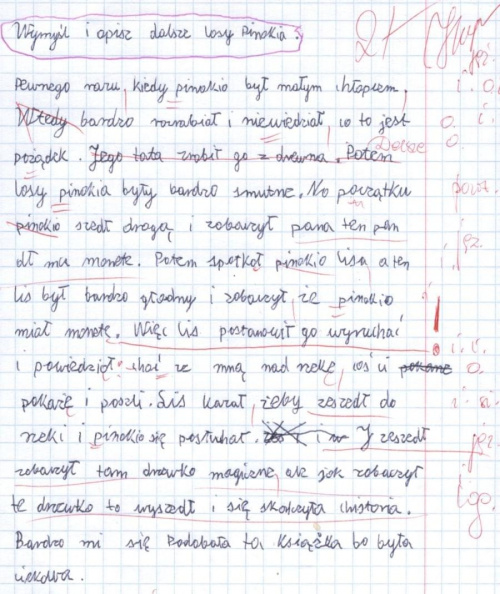 Wymyśl i opisz dalsze losy Pinokia.
2+
Pewnego razu, kiedy pinokio był małym chłopcem.
jęz.
i. o.
Wtedy bardzo rozrabiał i niewiedział, co to jest
o. i.
porządek. Jego tata zrobił go z drewna. Potem
Dalsze
o.
losy pinokia były bardzo smutne. No początku
powt.
pinokio szedł drogą i zobaczył pana ten pan
ten
jęz.
dł mu monete. Potem spotkoł pinokio lisa a ten
i.
lis był bardzo głodny i zobaczył, że pinokio
miał monete. Więc lis postanowił go wyruchać
!
i powiedzioł: chać ze mną nad rzekę, coś ci pokarze
i. i.
o.
pokarzę i poszli. Lis kazał, żeby zeszedł do
rzeki i pinokio się posłuchał. i w J zeszedł
jęz.
zobaczył tam drzewko magiczne, ale jak zobaczył
te drzewko to wyszedł i się skończyła chistoria.
Bardzo mi się Podobała ta książka bo była
ciekawa.